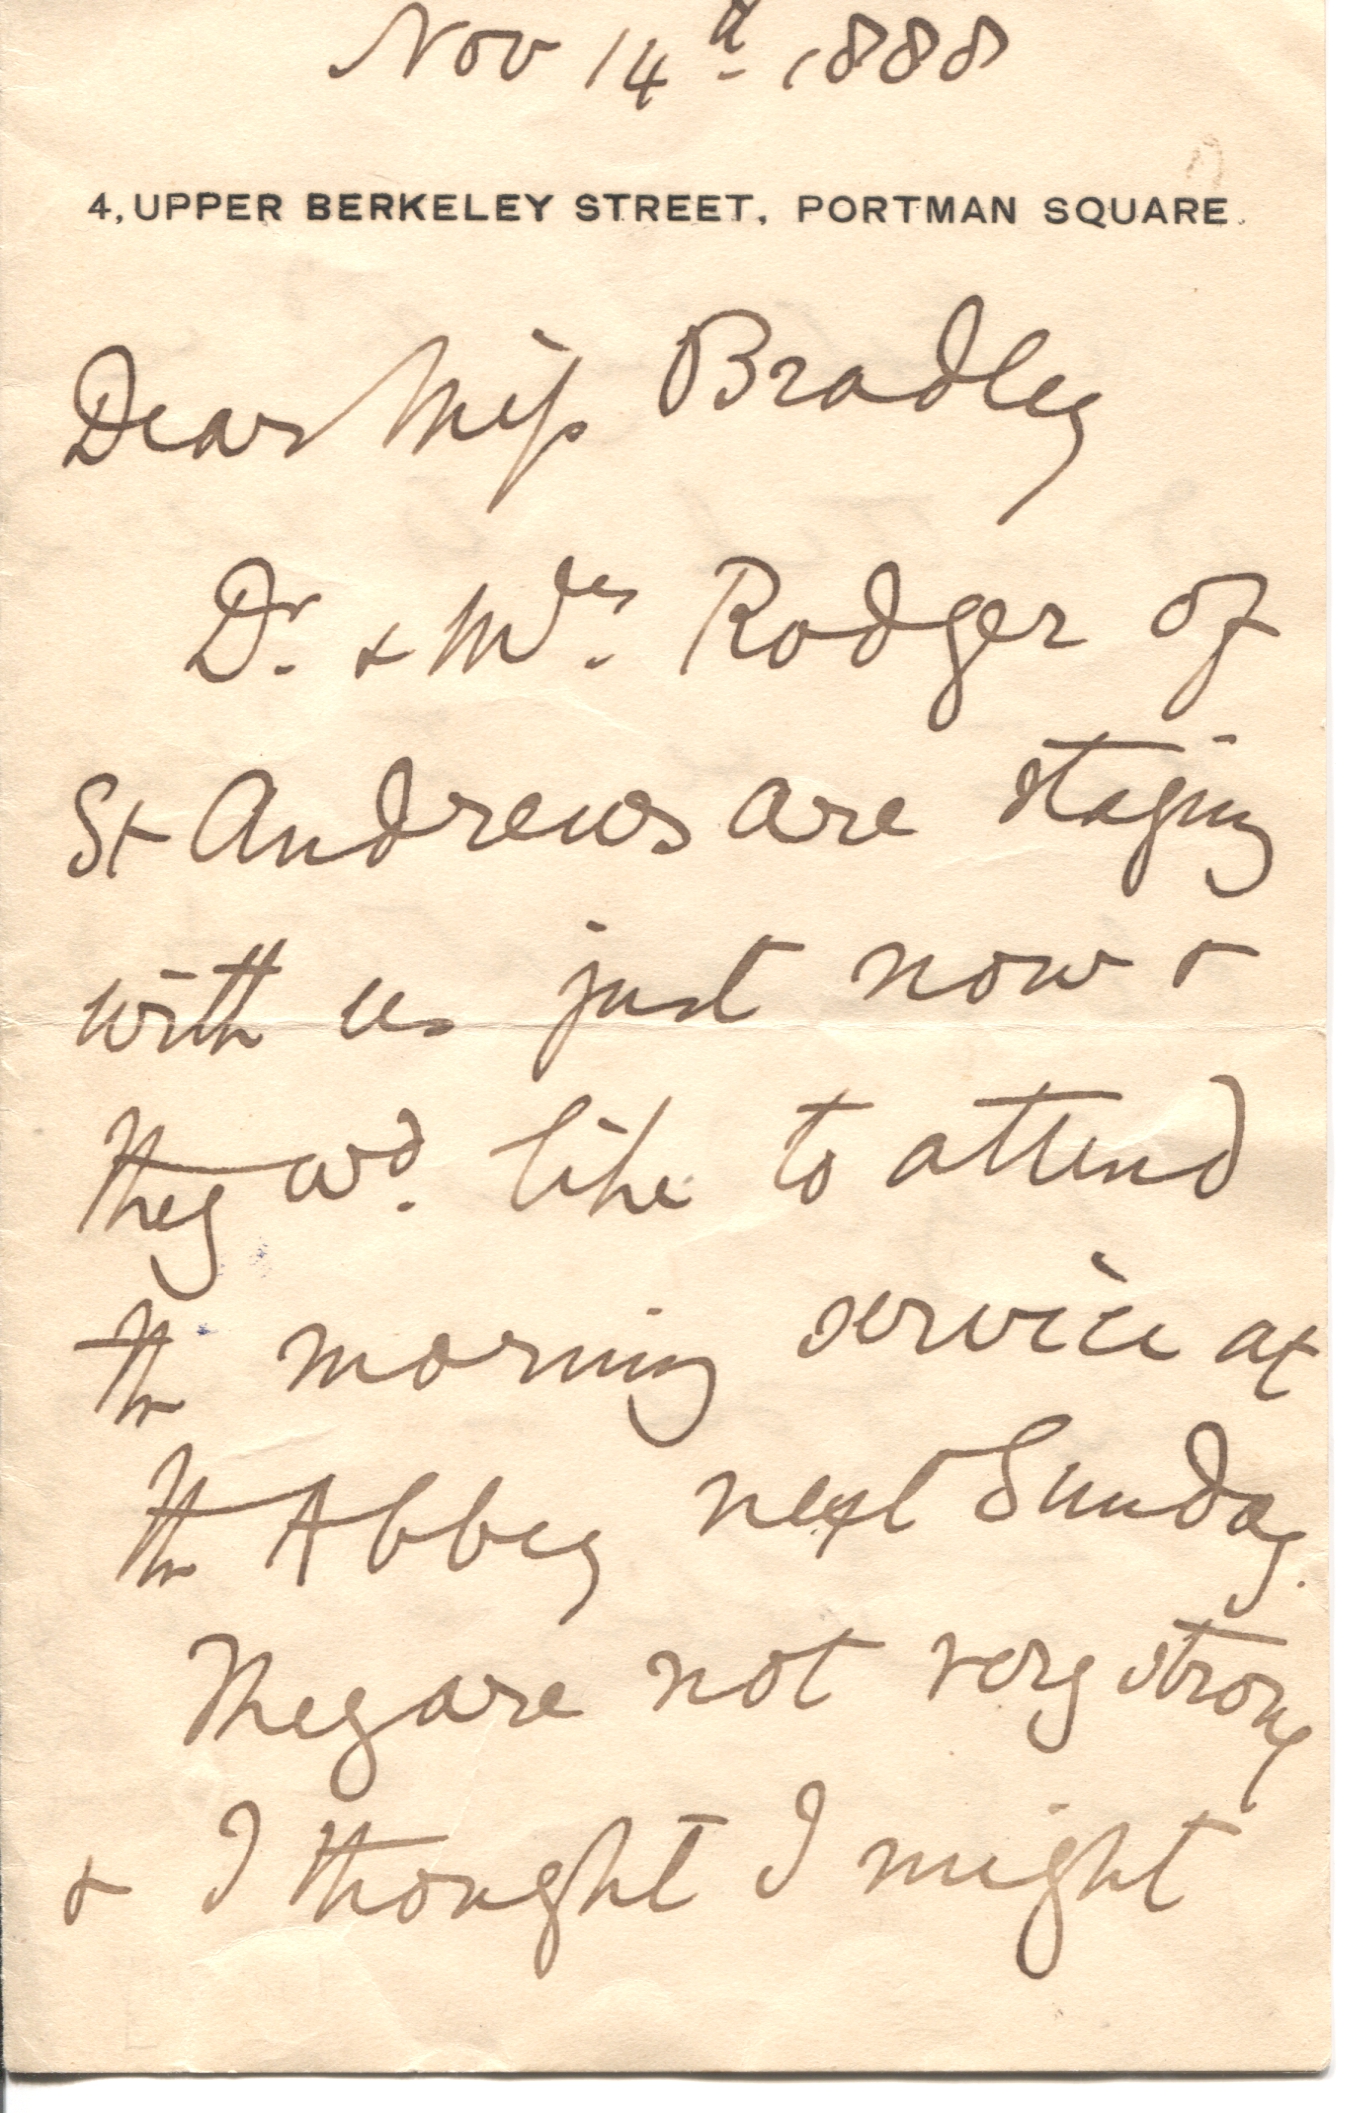 Nov 14th 1888
4, UPPER BERKELEY STREET, PORTMAN SQUARE.
Dear Miss Bradley
Dr. & Mrs. Rodger of
St Andrews are staying
with us just now &
they wd. like to attend
the morning service at
the Abbey next Sunday.
They are not very strong
& I thought I might